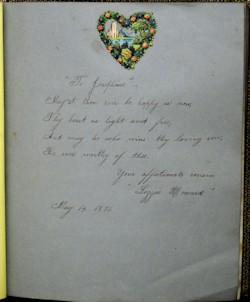 "To Josephine".
May'st thou ever be happy as now,
Thy heart as light and free,
And may he who wins thy loving vow,
Be ever worthy of thee.
Your affectionate cousin
"Lizzie
May 14, 18